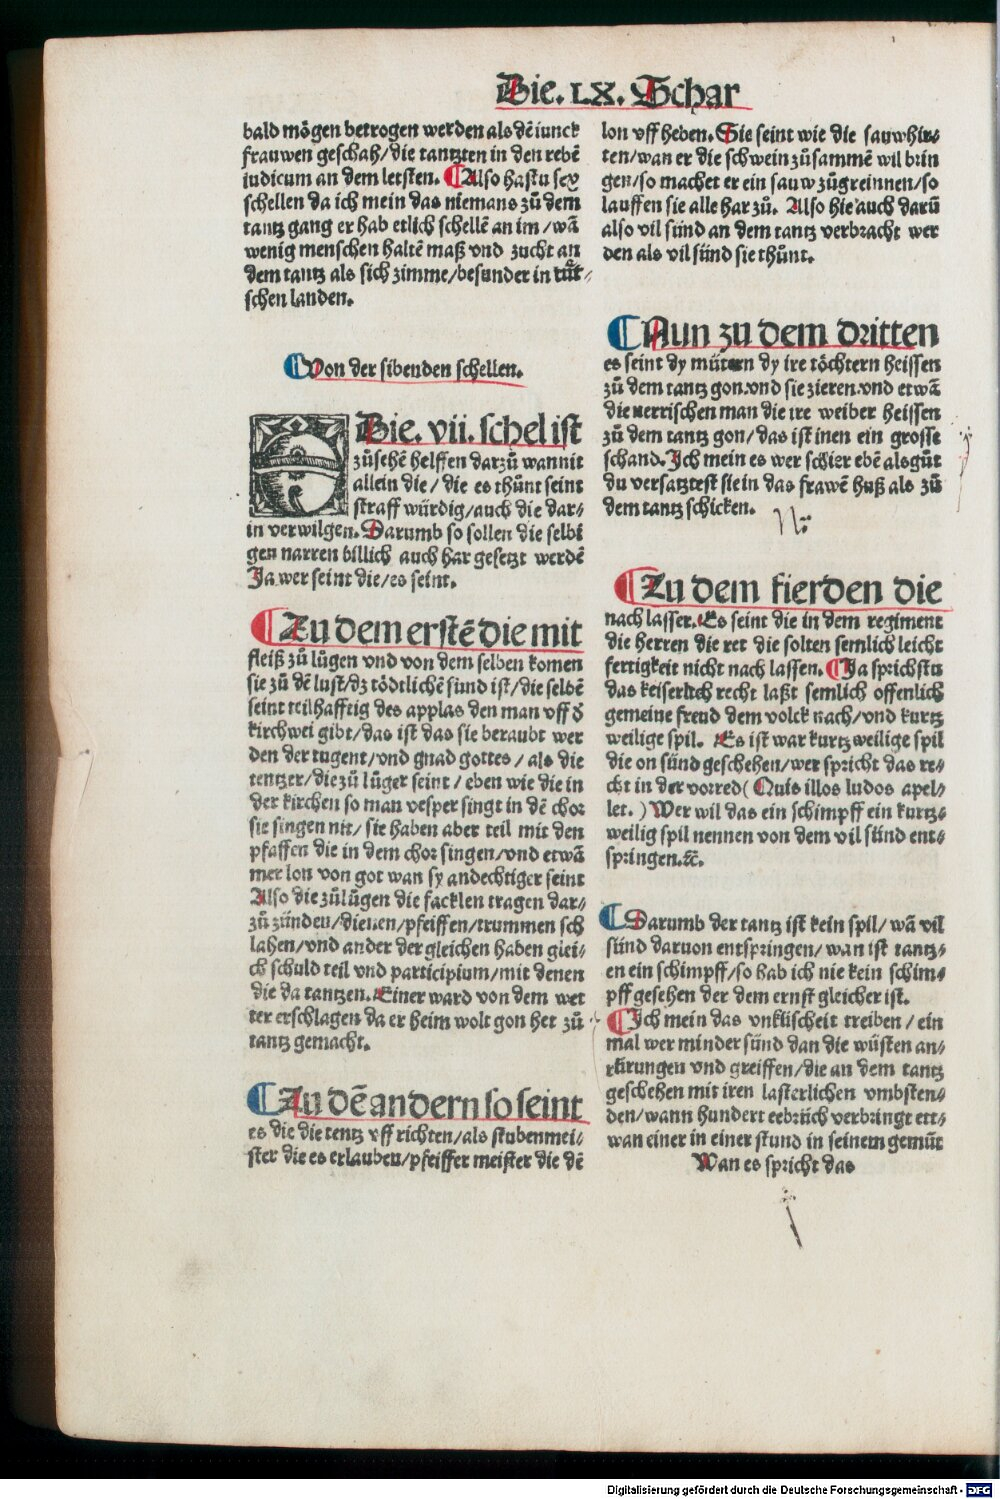 Die. LX. Schar
bald mögen betrogen werden als dē iunck
frauwen geschah/die tantzten in den rebē
iudicum an dem letsten. ¶Also hastu sex
schellen da ich mein das niemans zů dem
tantz gang er hab etlich schellē an im/wā
wenig menschen haltē maß vnd zucht an
dem tantz als sich zimme/besunder in tüt⸗
schen landen.
¶Von der sibenden schellen.
Die. vii. schel ist
zůsehē helffen darzů wann nit
allein die/die es thůnt seint
straff würdig/auch die dar⸗
in verwilgen. Darumb so sollen die selbi
gen narren billich auch har gesetzt werdē
Ja wer seint die/es seint.
¶Zu dem erstē die mit
fleiß zů lůgen vnd von dem selben komen
sie zů dē lust/dz tödtlichē sund ist/die selbē
seint teilhafftig des applas den man vff ď
kirchwei gibt/das ist das sie beraubt wer
den der tugent/vnd gnad gottes/als die
tentzer/die zů lůger seint/eben wie die in
der kirchen so man vesper singt in dē chor
sie singen nit/sie haben aber teil mit den
pfaffen die in dem chor singen/vnd etwā
mer lon von got wan sy andechtiger seint
Also die zůlůgen die facklen tragen dar⸗
zů zünden/dienen/pfeiffen/trummen sch
lahen/vnd ander der gleichen haben glei⸗
ch schuld teil vnd participium/mit denen
die da tantzen. Einer ward von dem wet
ter erschlagen da er heim wolt gon het zů
tantz gemacht.
¶Zu dē andern so seint
es die die tentz vff richten/als stubenmei⸗
ster die es erlauben/pfeiffer meister die dē
lon vff heben. Sie seint wie die sauwhir⸗
ten/wan er die schwein zůsammē wil brin
gen/so machet er ein sauw zůgreinnen/so
lauffen sie alle har zů. Also hie auch darū
also vil sünd an dem tantz verbracht wer
den als vil sünd sie thůnt.
¶Nun zu dem dritten
es seint dy mütern dy ire töchtern heissen
zů dem tantz gon.vnd sie zieren.vnd etwā
die nerrischen man die ire weiber heissen
zů dem tantz gon/das ist inen ein grosse
schand. Jch mein es wer schier ebē als gůt
du versatztest sie in das frawē huß als zů
dem tantz schicken.
¶Zu dem fierden die
nach lasser. Es seint die in dem regiment
die herren die ret die solten semlich leicht
fertigkeit nicht nach lassen. ¶Ja sprichstu
das keiserlich recht laßt semlich offenlich
gemeine freud dem volck nach/vnd kurtz
weilige spil. Es ist war kurtzweilige spil
die on sünd geschehen/wer spricht das re⸗
cht in der vorred (Quis illos ludos apel⸗
let.) Wer wil das ein schimpff ein kurtz⸗
weilig spil nennen von dem vil sünd ent⸗
springen.ꝛc̄.
¶Darumb der tantz ist kein spil/wā vil
sünd daruon entspringen/wan ist tantz⸗
en ein schimpff/so hab ich nie kein schim⸗
pff gesehen der dem ernst gleicher ist.
¶Jch mein das vnküscheit treiben/ein
mal wer minder sünd dan die wüsten an⸗
rürungen vnd greiffen/die an dem tantz
geschehen mit iren lasterlichen vmbsten⸗
den/wann hundert eebrüch verbringt ett⸗
wan einer in einer stund in seinem gemüt
Wan es spricht das
Digitalisierung gefördert durch die Deutsche Forschungsgemeinschaft - DFG